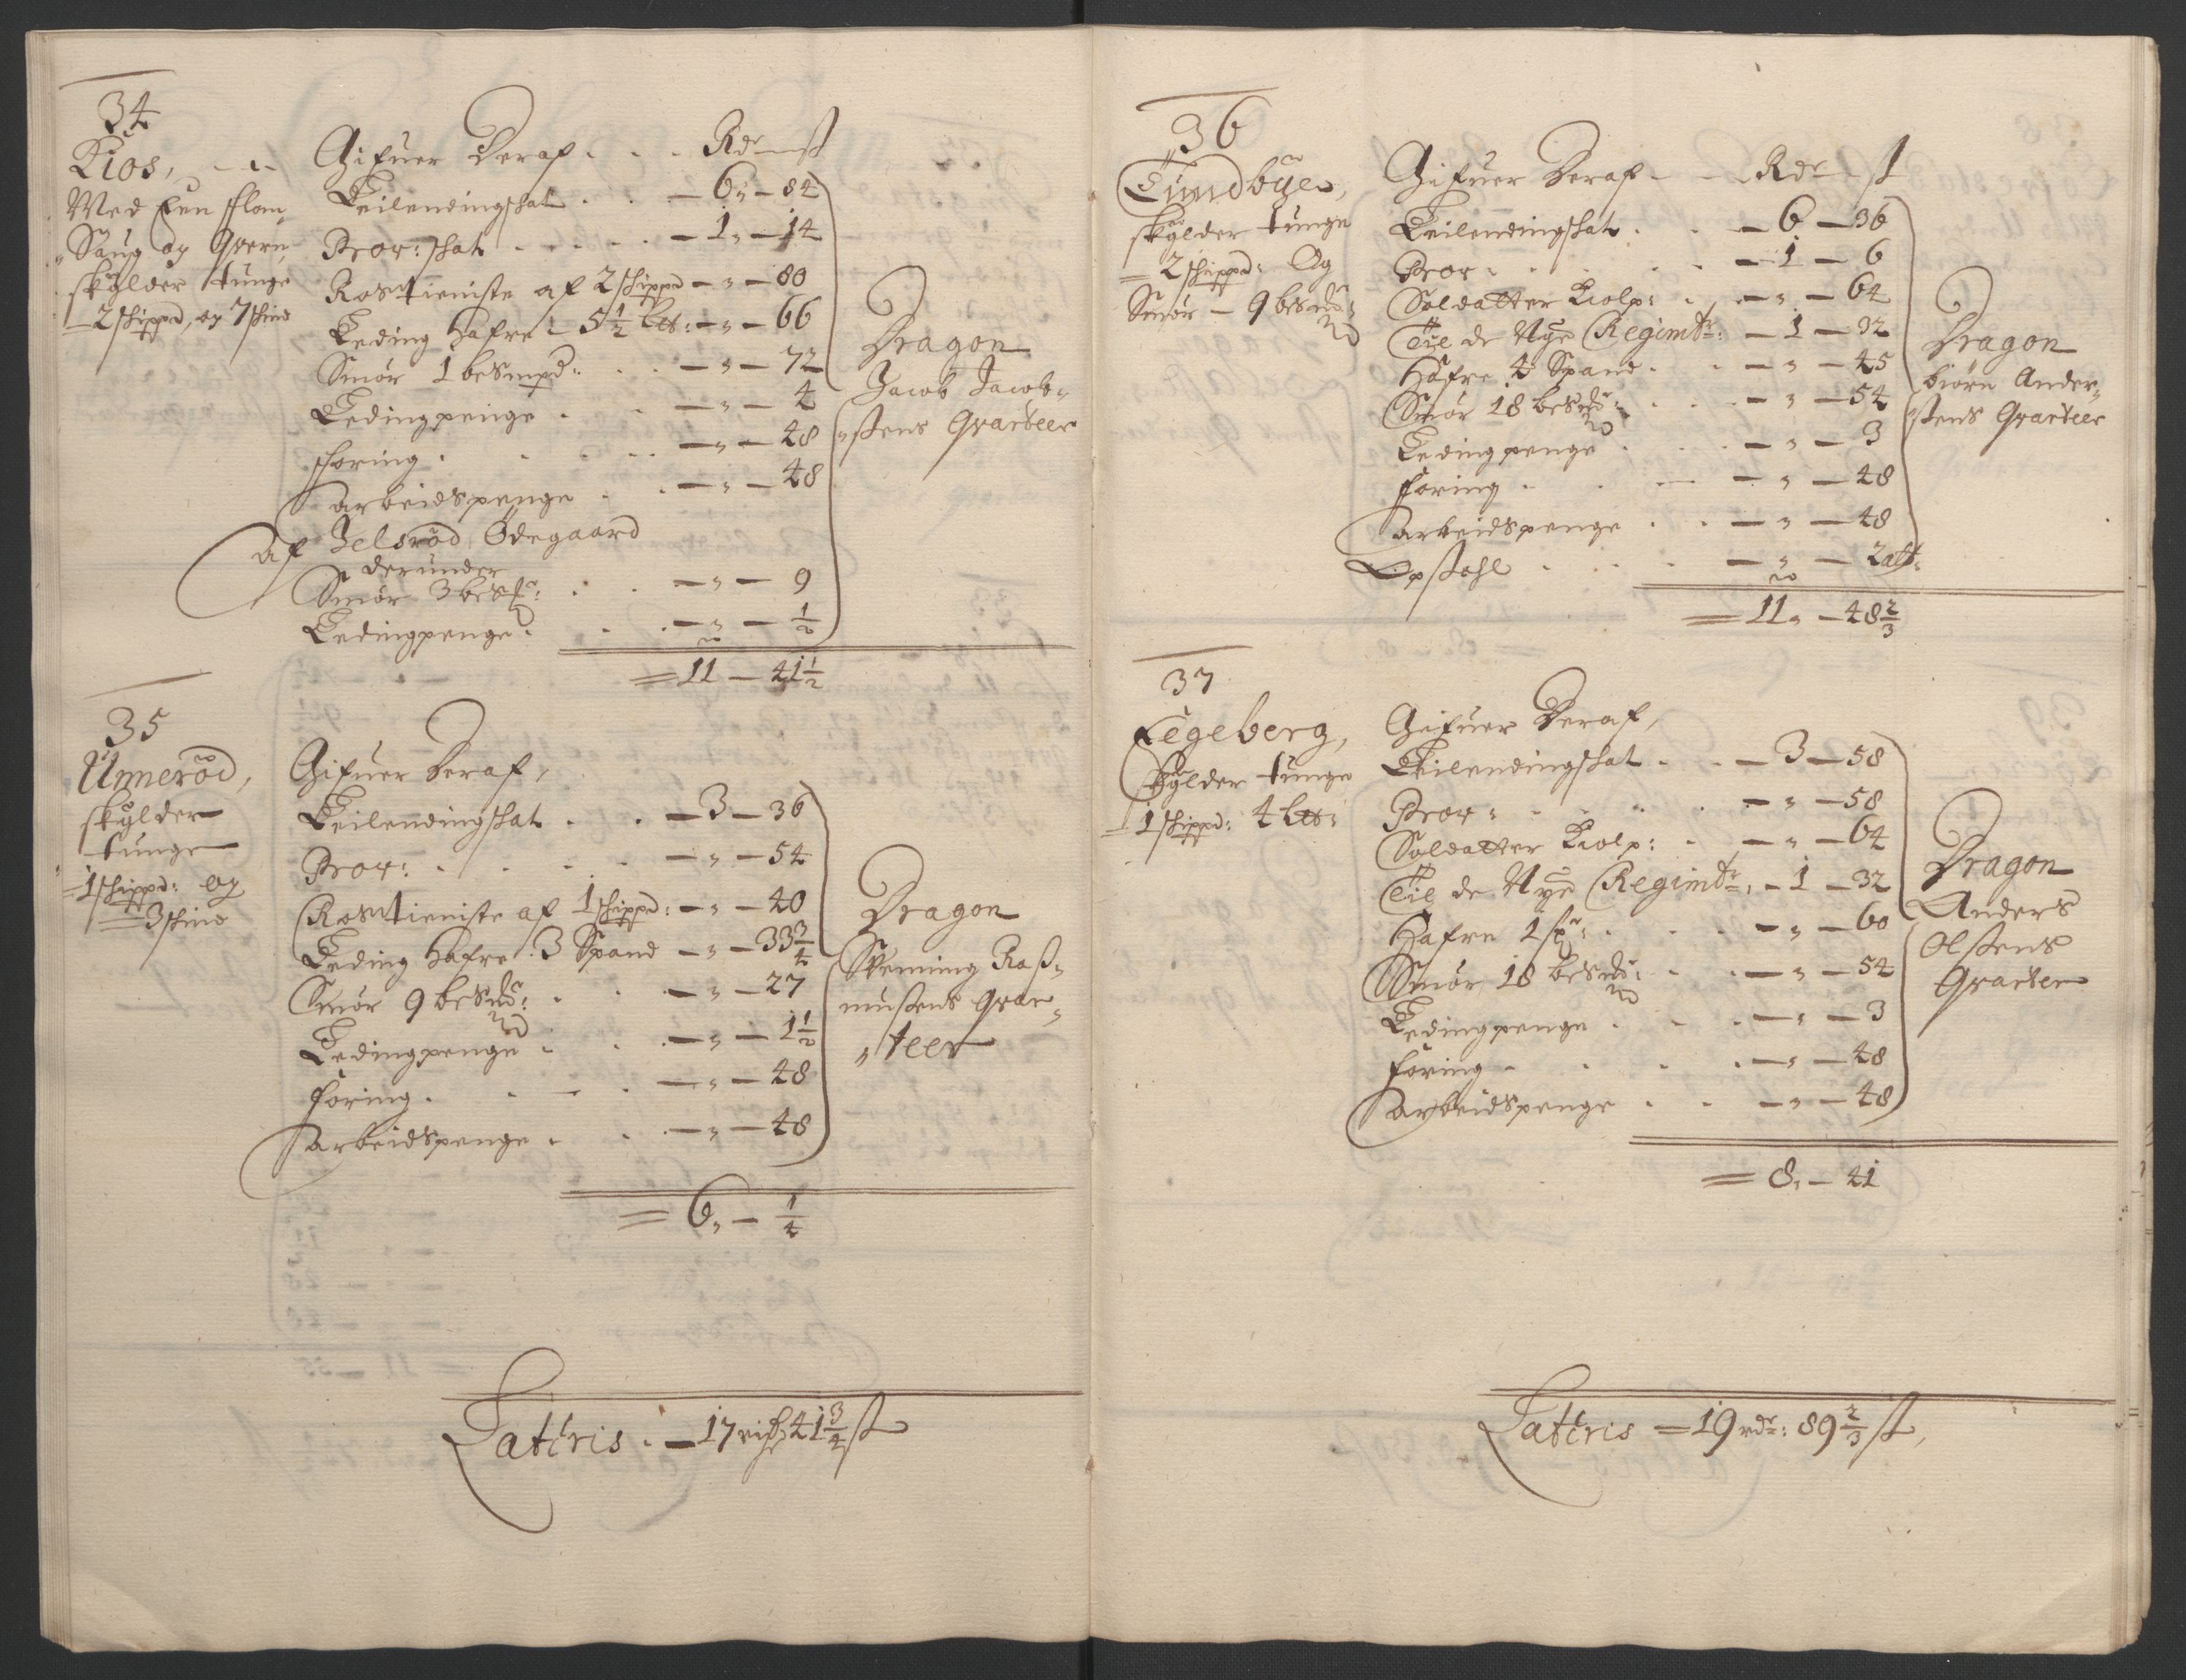 34
Kios,
Med Een flom„
„Saug og Qvern„
skylder tunge
2 schippd, og 7 schind
Gifuer Deraf . . . Rdr — ß
Leilendingschat . . — 6 „ — 84
Prov: schat . . . . — 1 „ — 14
Rostieniste af 2 schippd — „ — 80
Leding hafre — 5 1/2 Ltt: — „ — 66
Smør 1 besmpd: . . — „ — 72
Ledingpenge . . — „ — 4
foring . . . . — „ — 48
arbeidspenge . . — „ — 48
af Jelsrød Ødegaard
derunder
Smør 3 besmr: . . — „ — 9
Ledingpenge . . . — „ — 1/2
= 11 — 41 1/2
Dragon
Jacob Jacob„
„ßens Qvarteer
35
Unnerød,
skylder
tunge
1 schippd: og
3 schind
Gifuer Deraf,
Leilendingschat . . — 3 — 36
Prov: . . . . — „ — 54
Rostieniste af 1 schippd: — „ — 40
Leding hafre: 3 Spand — „ — 33 3/4
Smør 9 besmr: . . — „ — 27
Ledingpenge . . — „ — 1 1/2
foring . . . . — „ — 48
arbeidspenge . . — „ — 48
= 6 „ — 1/4
Dragon
Hemming Raß„
mußens Qvar„
„teer
Latteris . — 17 rixdr 41 3/4 ß
36
Tundbye,
skylder tunge
= 2 schippd: Og
Smør — 9 besmr:
Gifuer Deraf — — Rdr — ß
Leilendingschat . . — 6 — 36
Prov . . . . . — 1 — 6
Soldatter Kiolp: . — „ — 64
Til de Nye Regimtr: — 1 — 32
Hafre 4 Spand . . — „ — 45
Smør 18 besmr: . . — „ — 54
Ledingpenge . . . — „ — 3
foring . . . — „ — 48
arbeidspenge . . — „ — 48
Opstahl . . . — „ — 2 alb:
= 11 „ — 48 2/3
Dragon
biørn Ander„
„ßens Qvarteer
37
Eegeberg,
skylder tunge
= 1 schippd: 4 Ltt:
Gifuer Deraf,
Leilendingschat . . — 3 — 58
Prov: . . . . — „ — 58
Soldatter Kiolp: . — „ — 64
Til de Nye Regimtr, — 1 — 32
Hafre 1 hr: . . . — „ — 60
Smør 18 besmr: . . — „ — 54
Ledingpenge . . . — „ — 3
foring . . . . — „ — 48
arbeidspenge . . — „ — 48
= 8 „ — 41
Dragon
Anders
Olßens
Qvarteer
Latteris = 19 rdr: 89 2/3 ß,